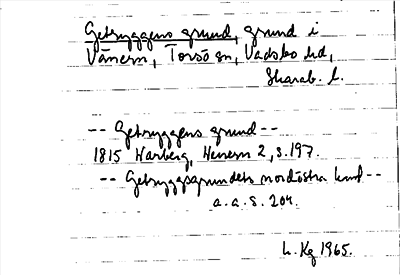 Getryggens grund, grund i
Vänern, Torsö sn, Vadsbo hd,
Skarab. l.
-- Getryggens grund --
1815 Warberg, Wenern 2, s. 197.
-- Getryggsgrundets nordöstra kant --
a. a. s. 204.
L. Kg 1965.